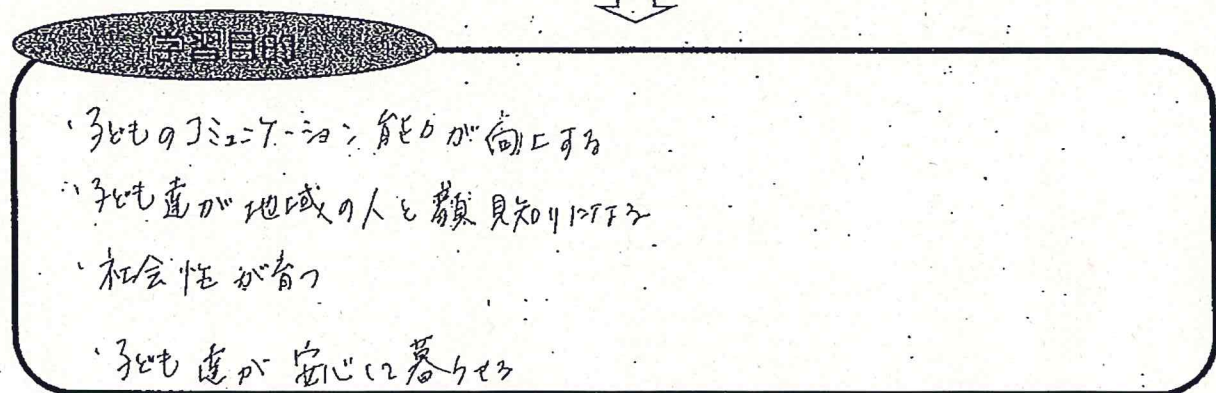 学習目的
・子どものコミュニケーション能力が向上する
・子ども達が地域の人と顔見知りになる
・社会性が育つ
・子ども達が安心して暮らせる